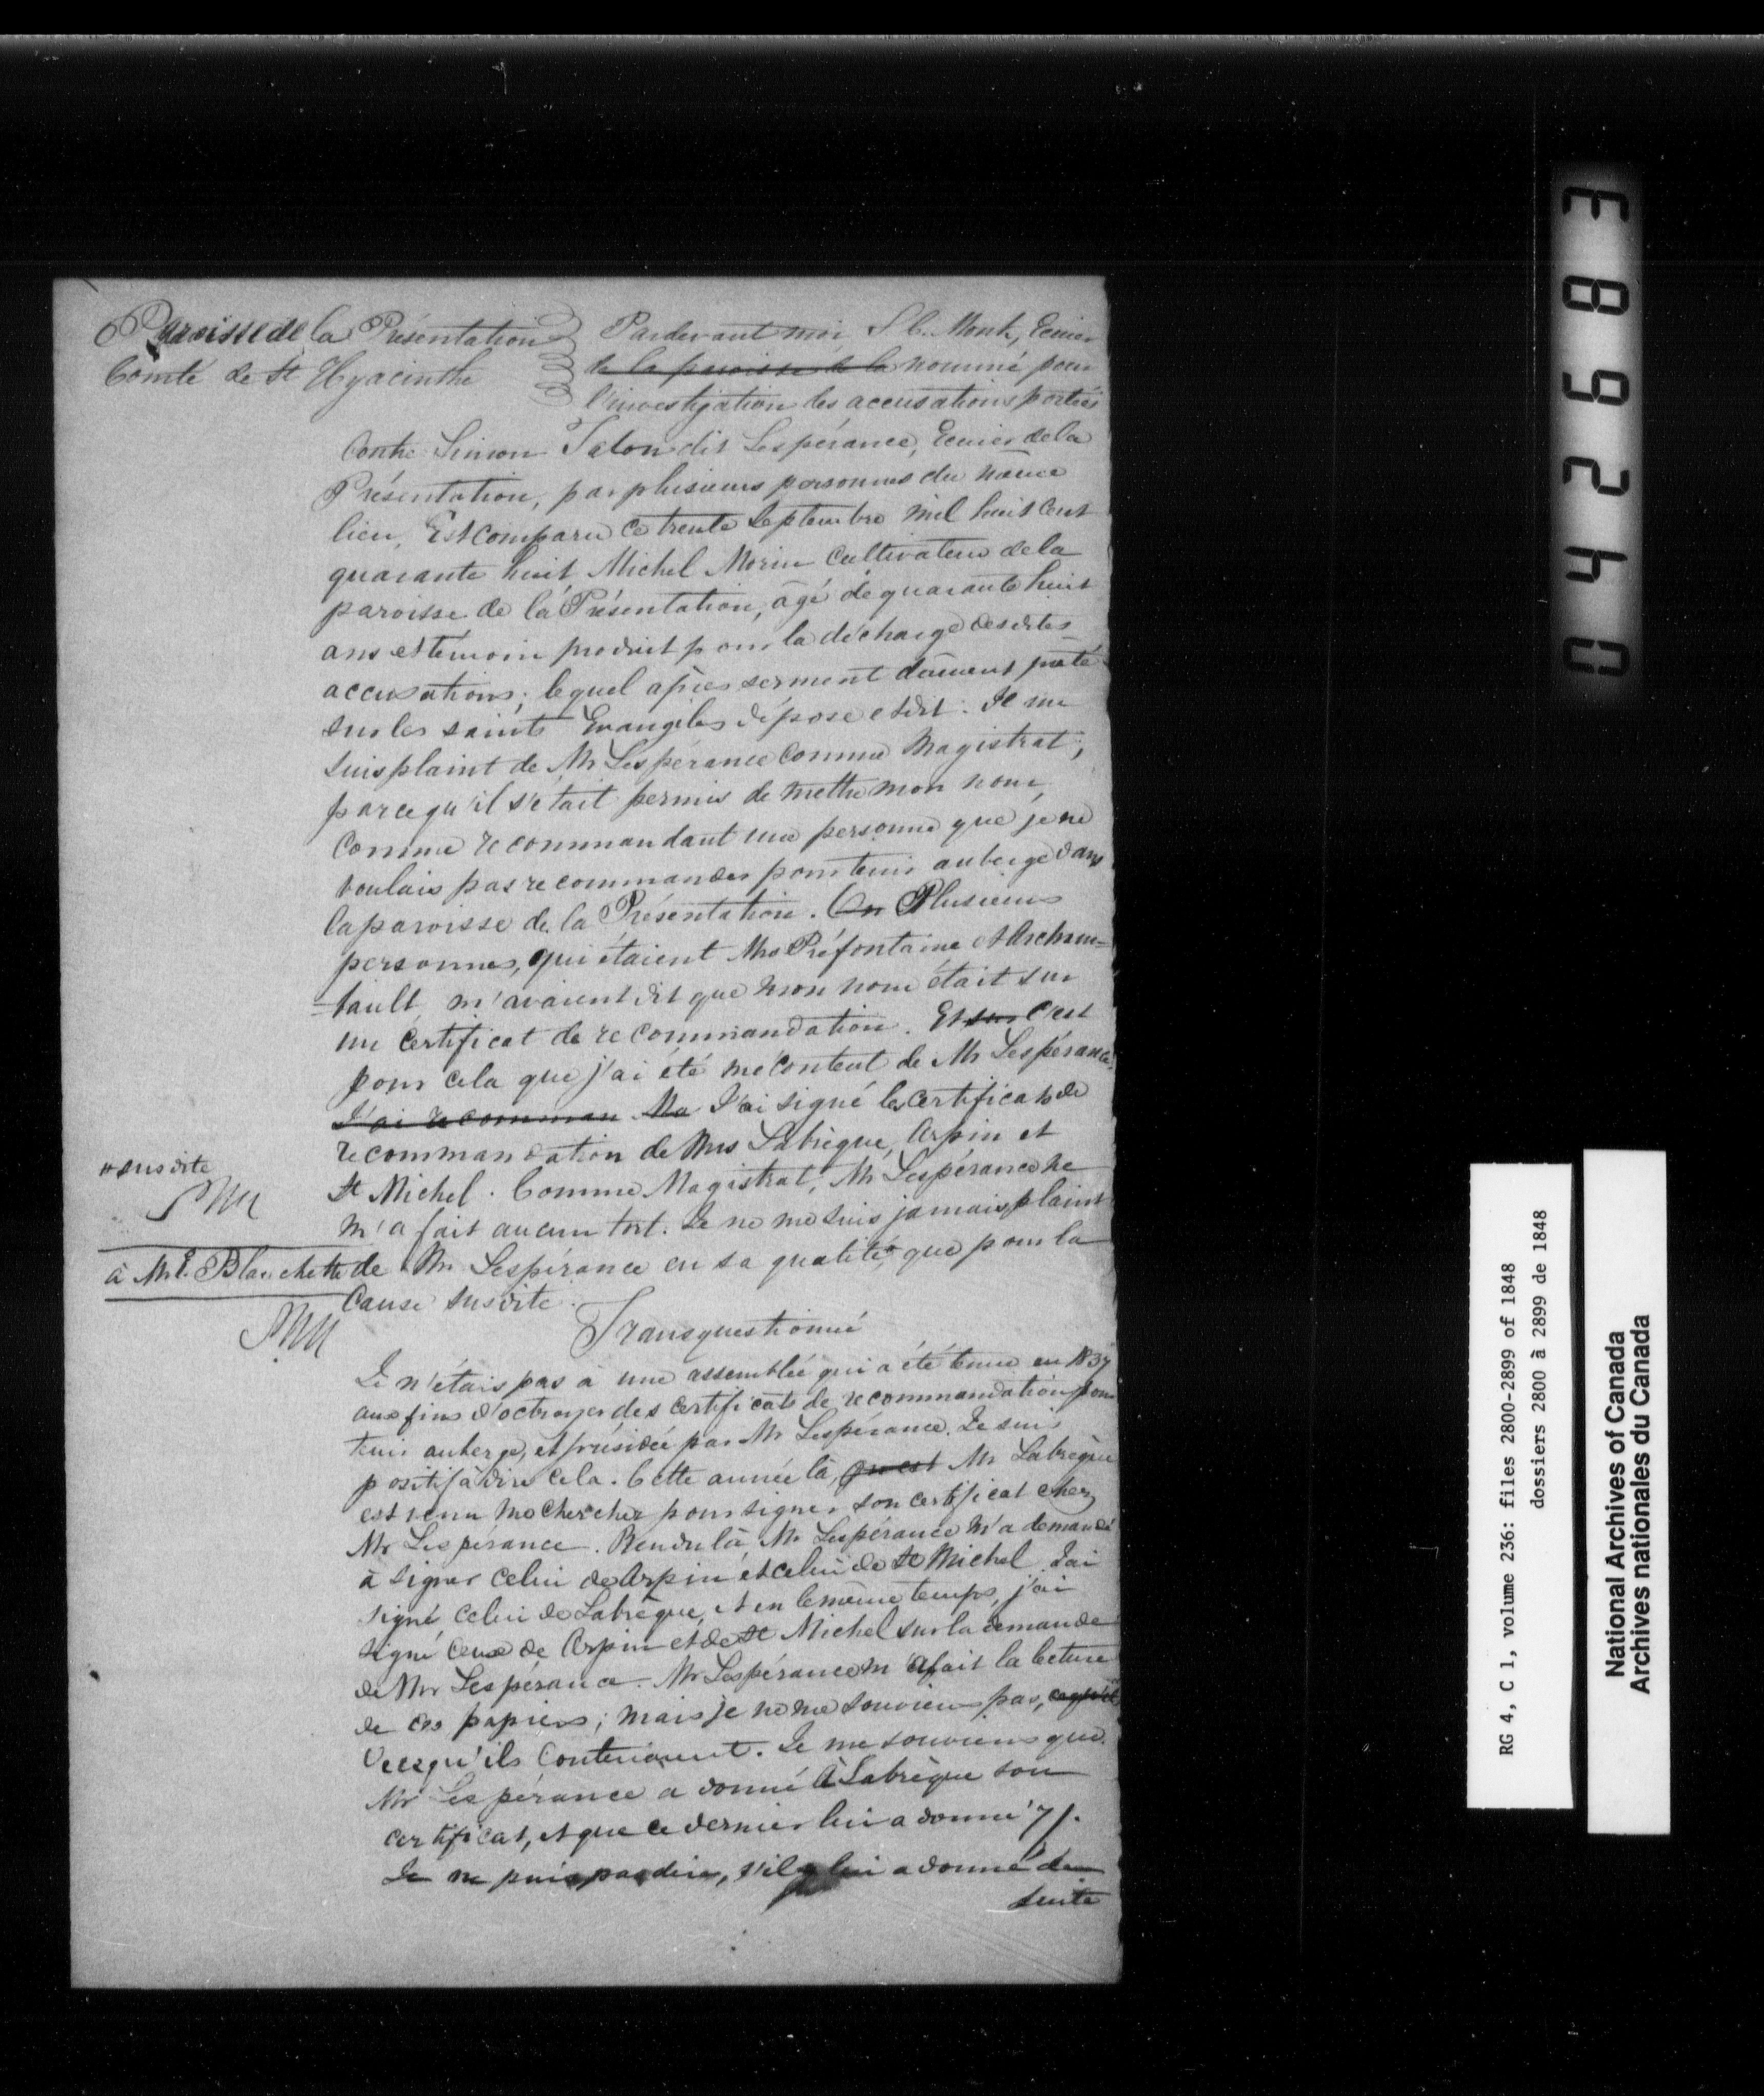 Paroisse de la Présentation
Comté de St Hyacinthe
Pardevant moi S C. Monk, Ecuier
de la paroisse de la nommé pour
l'investigation des accusations portées
Contre Simon Talon dit Lespérance, Ecuier de la
Présentation, par plusieurs personnes du même
lieu, Est comparu ce trente Septembre mil huit cent
quarante huit Michel Morin Cultivateur de la
paroisse de la Présentation, âgé de quarante huit
ans et témoin produit pour la décharge des dites
accusations; lequel après serment dûment prêté
sur les saints Evangiles dépose et dit: Je me
suis plaint de Mr Lespérance comme Magistrat;
parcequ'il s'était permis de mettre mon nom,
Comme recommandant une personne que je ne
voulais pas recommander pour tenir auberge dans
la paroisse de la Présentation. On Plusieurs
personnes, qui étaient Mrs Préfontaine et Archam=
=bault, m'avaient dit que mon nom était sur
un certificat de recommandation. Et sur C'est
pour cela que j'ai été mécontent de Mr Lespérance.
J'ai recomman Ma J'ai signé les Certificats de
recommandation de Mrs Labrèque, Arpin et
St Michel. Comme Magistrat, Mr Lespérance ne
m'a fait aucun tort. Je ne me suis jamais plaint
# susdite
à Mr E. Blanchette de Mr Lespérance en sa qualité # que pour la
Cause susdite.
Transquestionné
Je n'étais pas à une assemblée qui a été tenue en 1837
aux fins d'octroyer des certificats de recommandation pour
tenir auberge, et présidée par Mr Lespérance. Je suis
positif à dire cela. Cette année là, Mr Labrèque
est venu me chercher pour signer son certificat chez
Mr Lespérance. Rendu là Mr Lespérance m'a demandé
à signer celui de Arpin et celui de St Michel. J'ai
signé celui de Labrèque, et en le même temps, j'ai
signé ceux de Arpin et de St Michel sur la demande
de Mr Lespérance. Mr Lespérance m'a fait la lecture
de ces papiers; mais je ne me souviens pas, ce qu'il
de ce qu'ils contenaient. Je me souviens que
Mr Lespérance a donné à Labrèque son
certificat, et que ce dernier lui a donné 7/.
Je ne puis pas dire, s'il lui a donné de
suite
0 4 2 6 8 3
RG 4, C 1, volume 236: files 2800-2899 of 1848
dossiers 2800 à 2899 de 1848
National Archives of Canada
Archives nationales du Canada